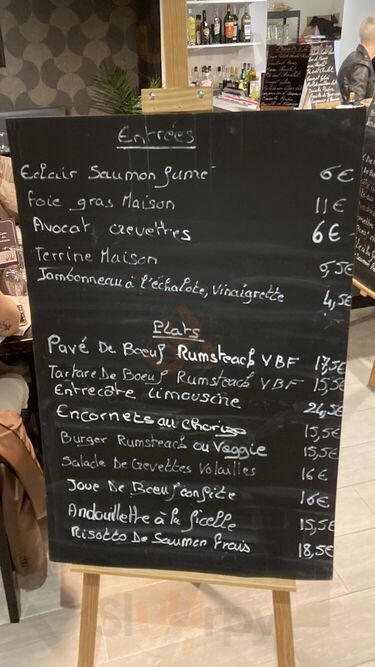 Entrées
Eclair Saumon fumé 6€
foie gras Maison 11€
Avocat crevettes 6€
Terrine Maison 5,5€
Jambonneau à l'échalote, Vinaigrette 4,5€
Plats
Pavé De Boeuf Rumsteack VBF 17,5€
Tartare De Boeuf Rumsteack VBF 15,5€
Entrecôte limousine 24,5€
Encornets au Chorizo 15,5€
Burger Rumsteack ou Veggie 15,5€
Salade De Crevettes Volailles 16€
Joue De Boeuf confite 16€
Andouillette à la ficelle 15,5€
Risotto De Saumon frais 18,5€